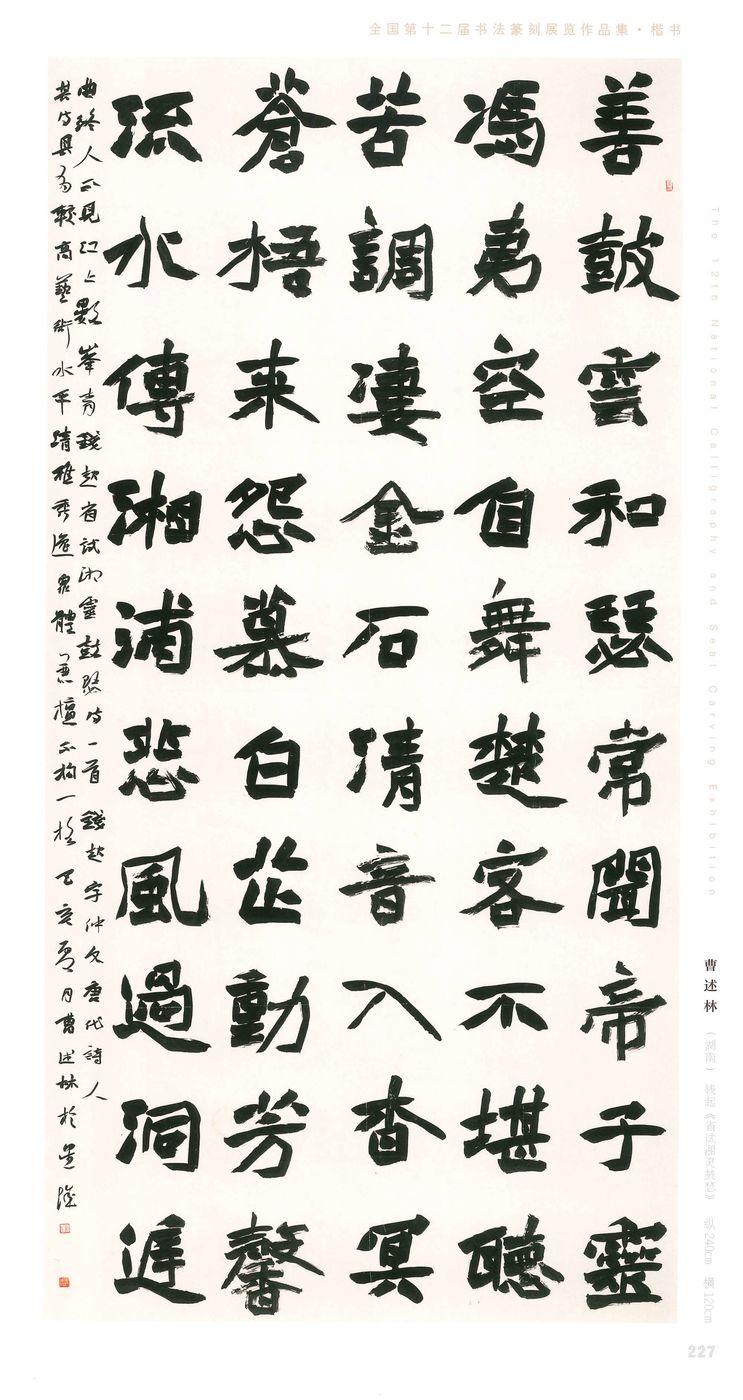 全国第十二届书法篆刻展览作品集·楷书
善鼓雲和瑟常聞帝子靈
馮夷空自舞楚客不堪聽
苦調凄金石清音入杳冥
蒼梧来怨慕白芷動芳馨
流水傳湘浦悲風過洞庭
曲終人不見江上數峯青 錢起省試湘靈鼓瑟詩一首 錢起字仲文唐代詩人
其詩具有較高藝術水平清雅秀逸眾體兼擅不拘一格 己亥夏月曹述林於
The 12th National Calligraphy and Seal Carving Exhibition
曹述林 （湖南） 钱起《省试湘灵鼓瑟》 纵240cm 横120cm
227